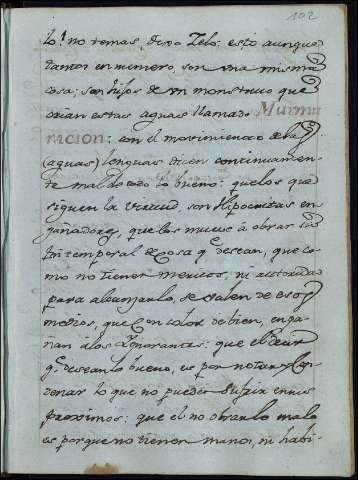 102
lo: no temas, dixo Zelo: esto aunque
tantos en numero, son una misma
cosa; son hijos de un monstruo que
crian estas aguas llamado Murmu
racion: con el movimiento de las
(aguas) lenguas dicen continuamen-
te mal de todo lo bueno: que los que
siguen la virtud, son Hipocritas en
gañadores, que los mueve a obrar su
fin temporal de cosa q desean, que co
mo no tienen meritos, ni autoridad
para alcanzarlo, se valen de esos
medios, que con color de bien, enga
ñan a los Ygnorantes: que el decir
q desean lo bueno, es por notar y con
denar lo que no pueden sufrir en sus
proximos: que el no obrar lo malo
es porque no tienen manos, ni habi-